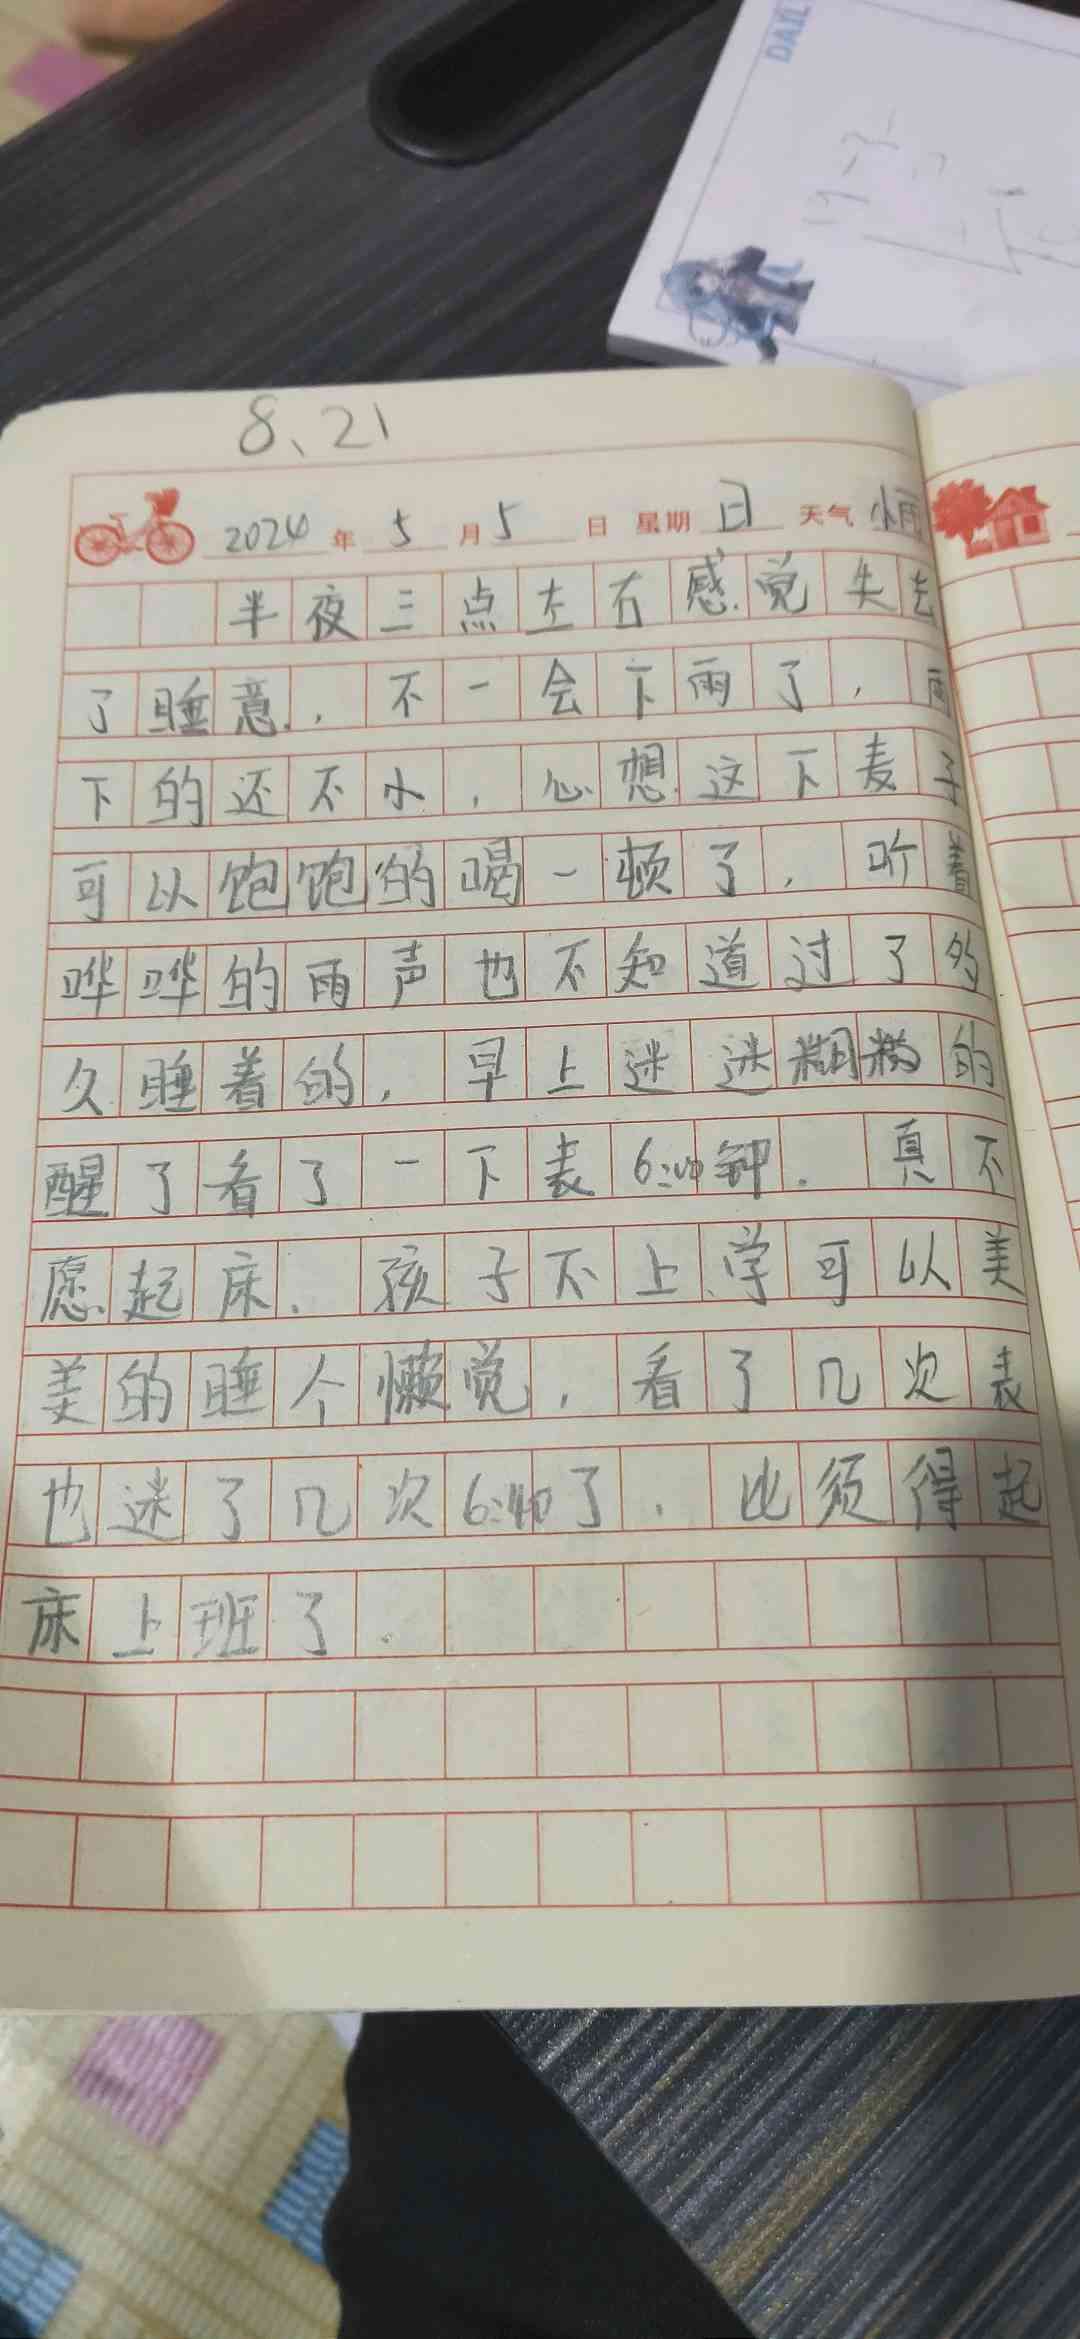 DAIL
8、21
2024年5月5日 星期日 天气小雨
半夜三点左右感觉失去
了睡意，不一会下雨了，雨
下的还不小，心想这下麦子
可以饱饱的喝一顿了，听着
哗哗的雨声也不知道过了多
久睡着的，早上迷迷糊糊的
醒了看了一下表6:00钟．真不
愿起床．孩子不上学可以美
美的睡个懒觉，看了几次表
也迷了几次6:40了．比须得起
床上班了．